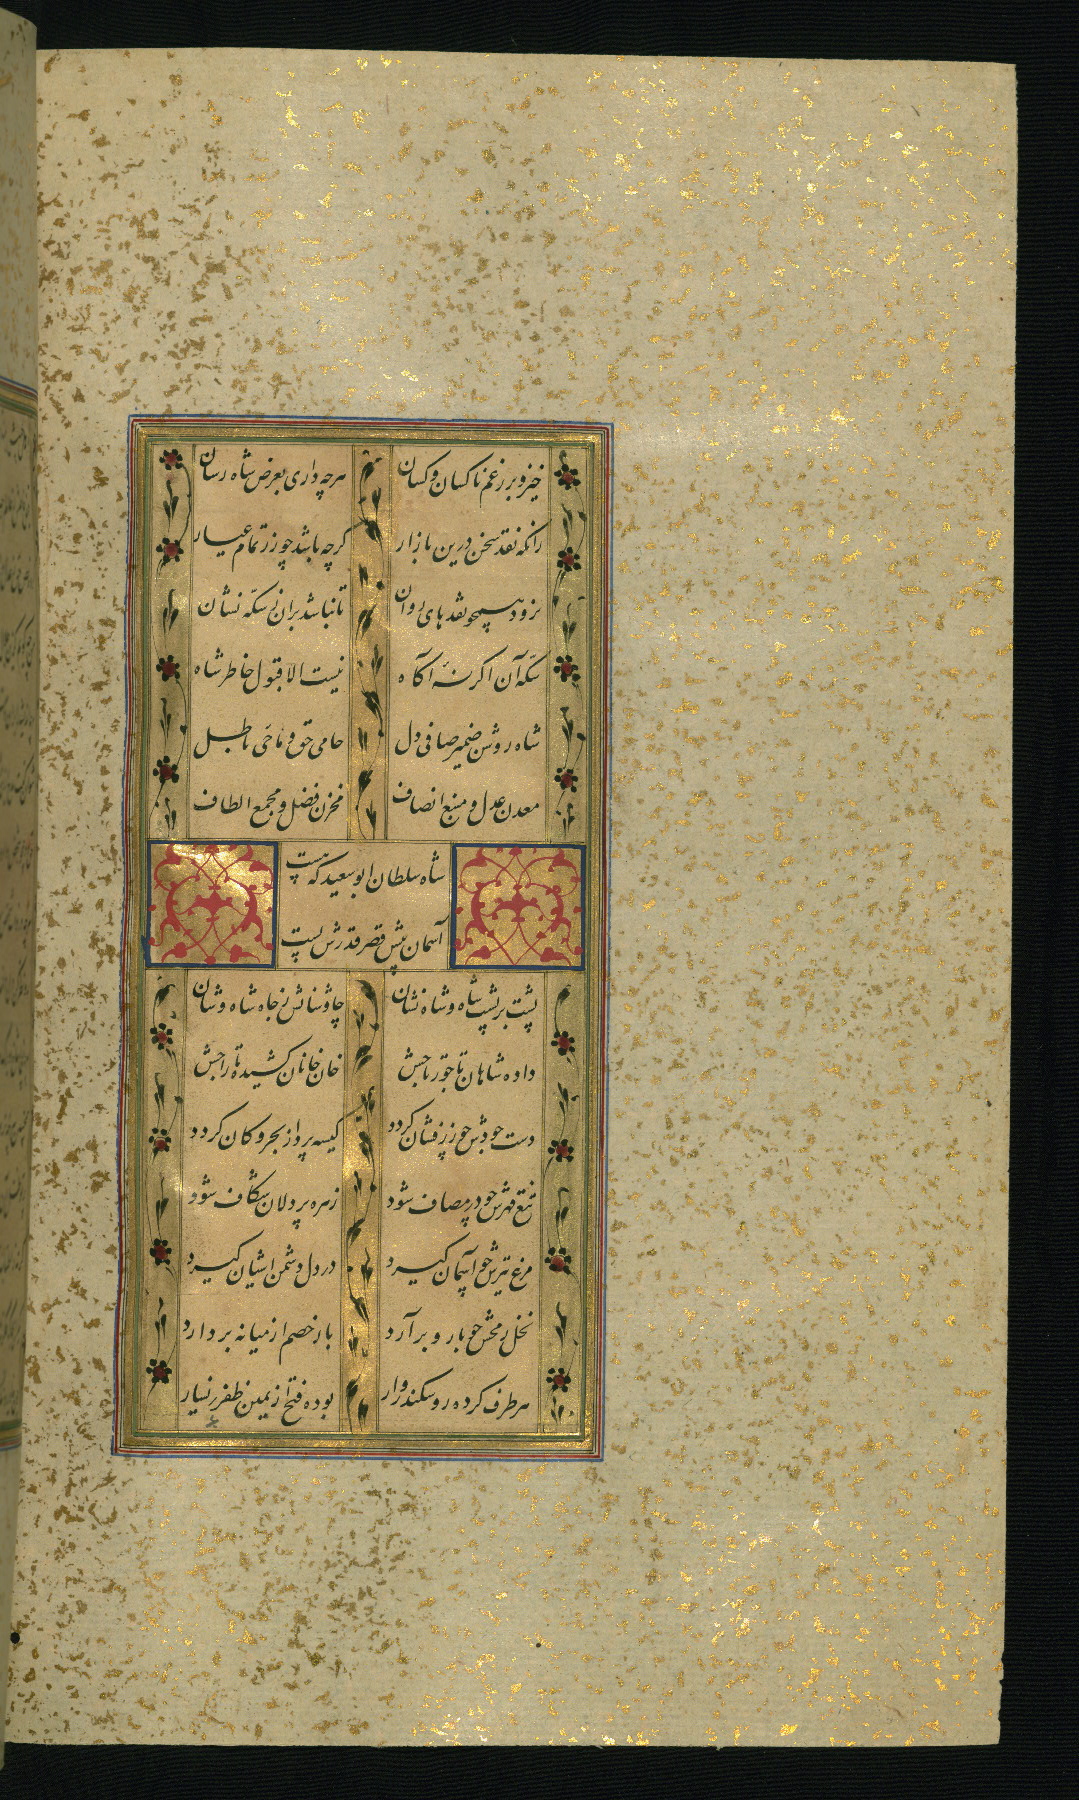 خیز و بر رغم ناکسان و کسان هرچه داری بعرض شاه رسان
زانکه نقد سخن درین بازار کرچه باشد چو زر تمام عیار
نرود همچو نقدهای روان تا نباشد بران ز سکه نشان
سکه آن اکر نهٔ آکاه نیست الا قبول خاطر شاه
شاه روشن ضمیر صافی دل حامی حق و ماحی باطل
معدن عدل و منبع انصاف مخزن فضل و مجمع الطاف
شاه سلطان ابوسعید که هست
آسمان پیش قصر قدرش پست
پشت بر پشت شاه و شاه نشان چاوشانش ز جاه شاه وشان
داده شاهان تاجور باجش خان خانان کشیده تاراجش
دست جودش چو زرفشان کردد کیسه پرداز بحر و کان کردد
تیغ قهرش چو در مصاف شود زهره پردلان شکاف شود
مرغ تیرش چو آسمان کیرد در دل دشمن آشیان کیرد
نخل رمحش چو بار و بر آرد بار خصم از میانه بردارد
هر طرف کرده رو سکندروار بوده فتح از یمین ظفر ز یسار